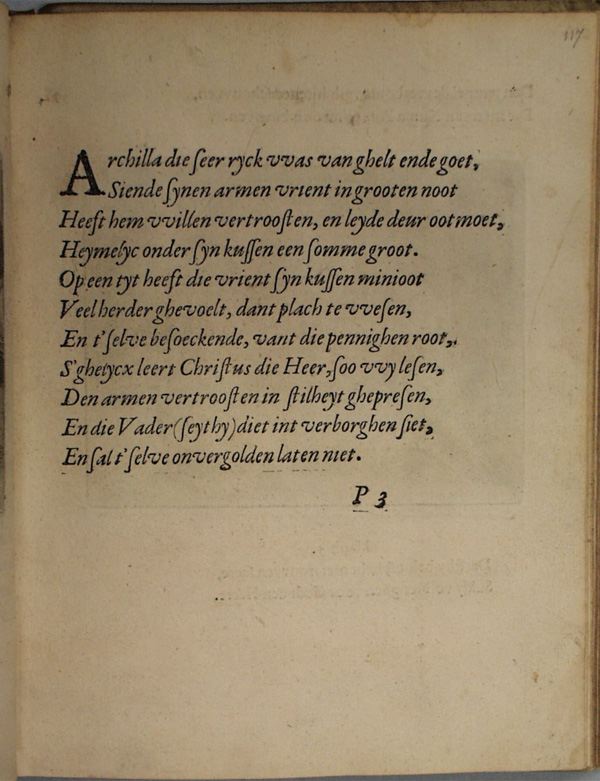 117
Archilla die ſeer ryck vvas van ghelt ende goet,
Siende ſynen armen vrient in grooten noot
Heeft hem vvillen vertrooſten, en leyde deur ootmoet,
Heymelyc onder ſyn kuſſen een ſomme groot.
Op een tyt heeft die vrient ſyn kuſſen minioot
Veel herder ghevoelt, dant plach te vveſen,
En t'ſelve beſoeckende, vant die pennighen root,.
S'ghelycx leert Chriſtus die Heer, ſoo vvy leſen,
Den armen vertrooſten in ſtilheyt ghepreſen,
En die Vader (ſeyt hy) diet int verborghen ſiet,
En ſal t'ſelve onvergolden laten niet.
P 3